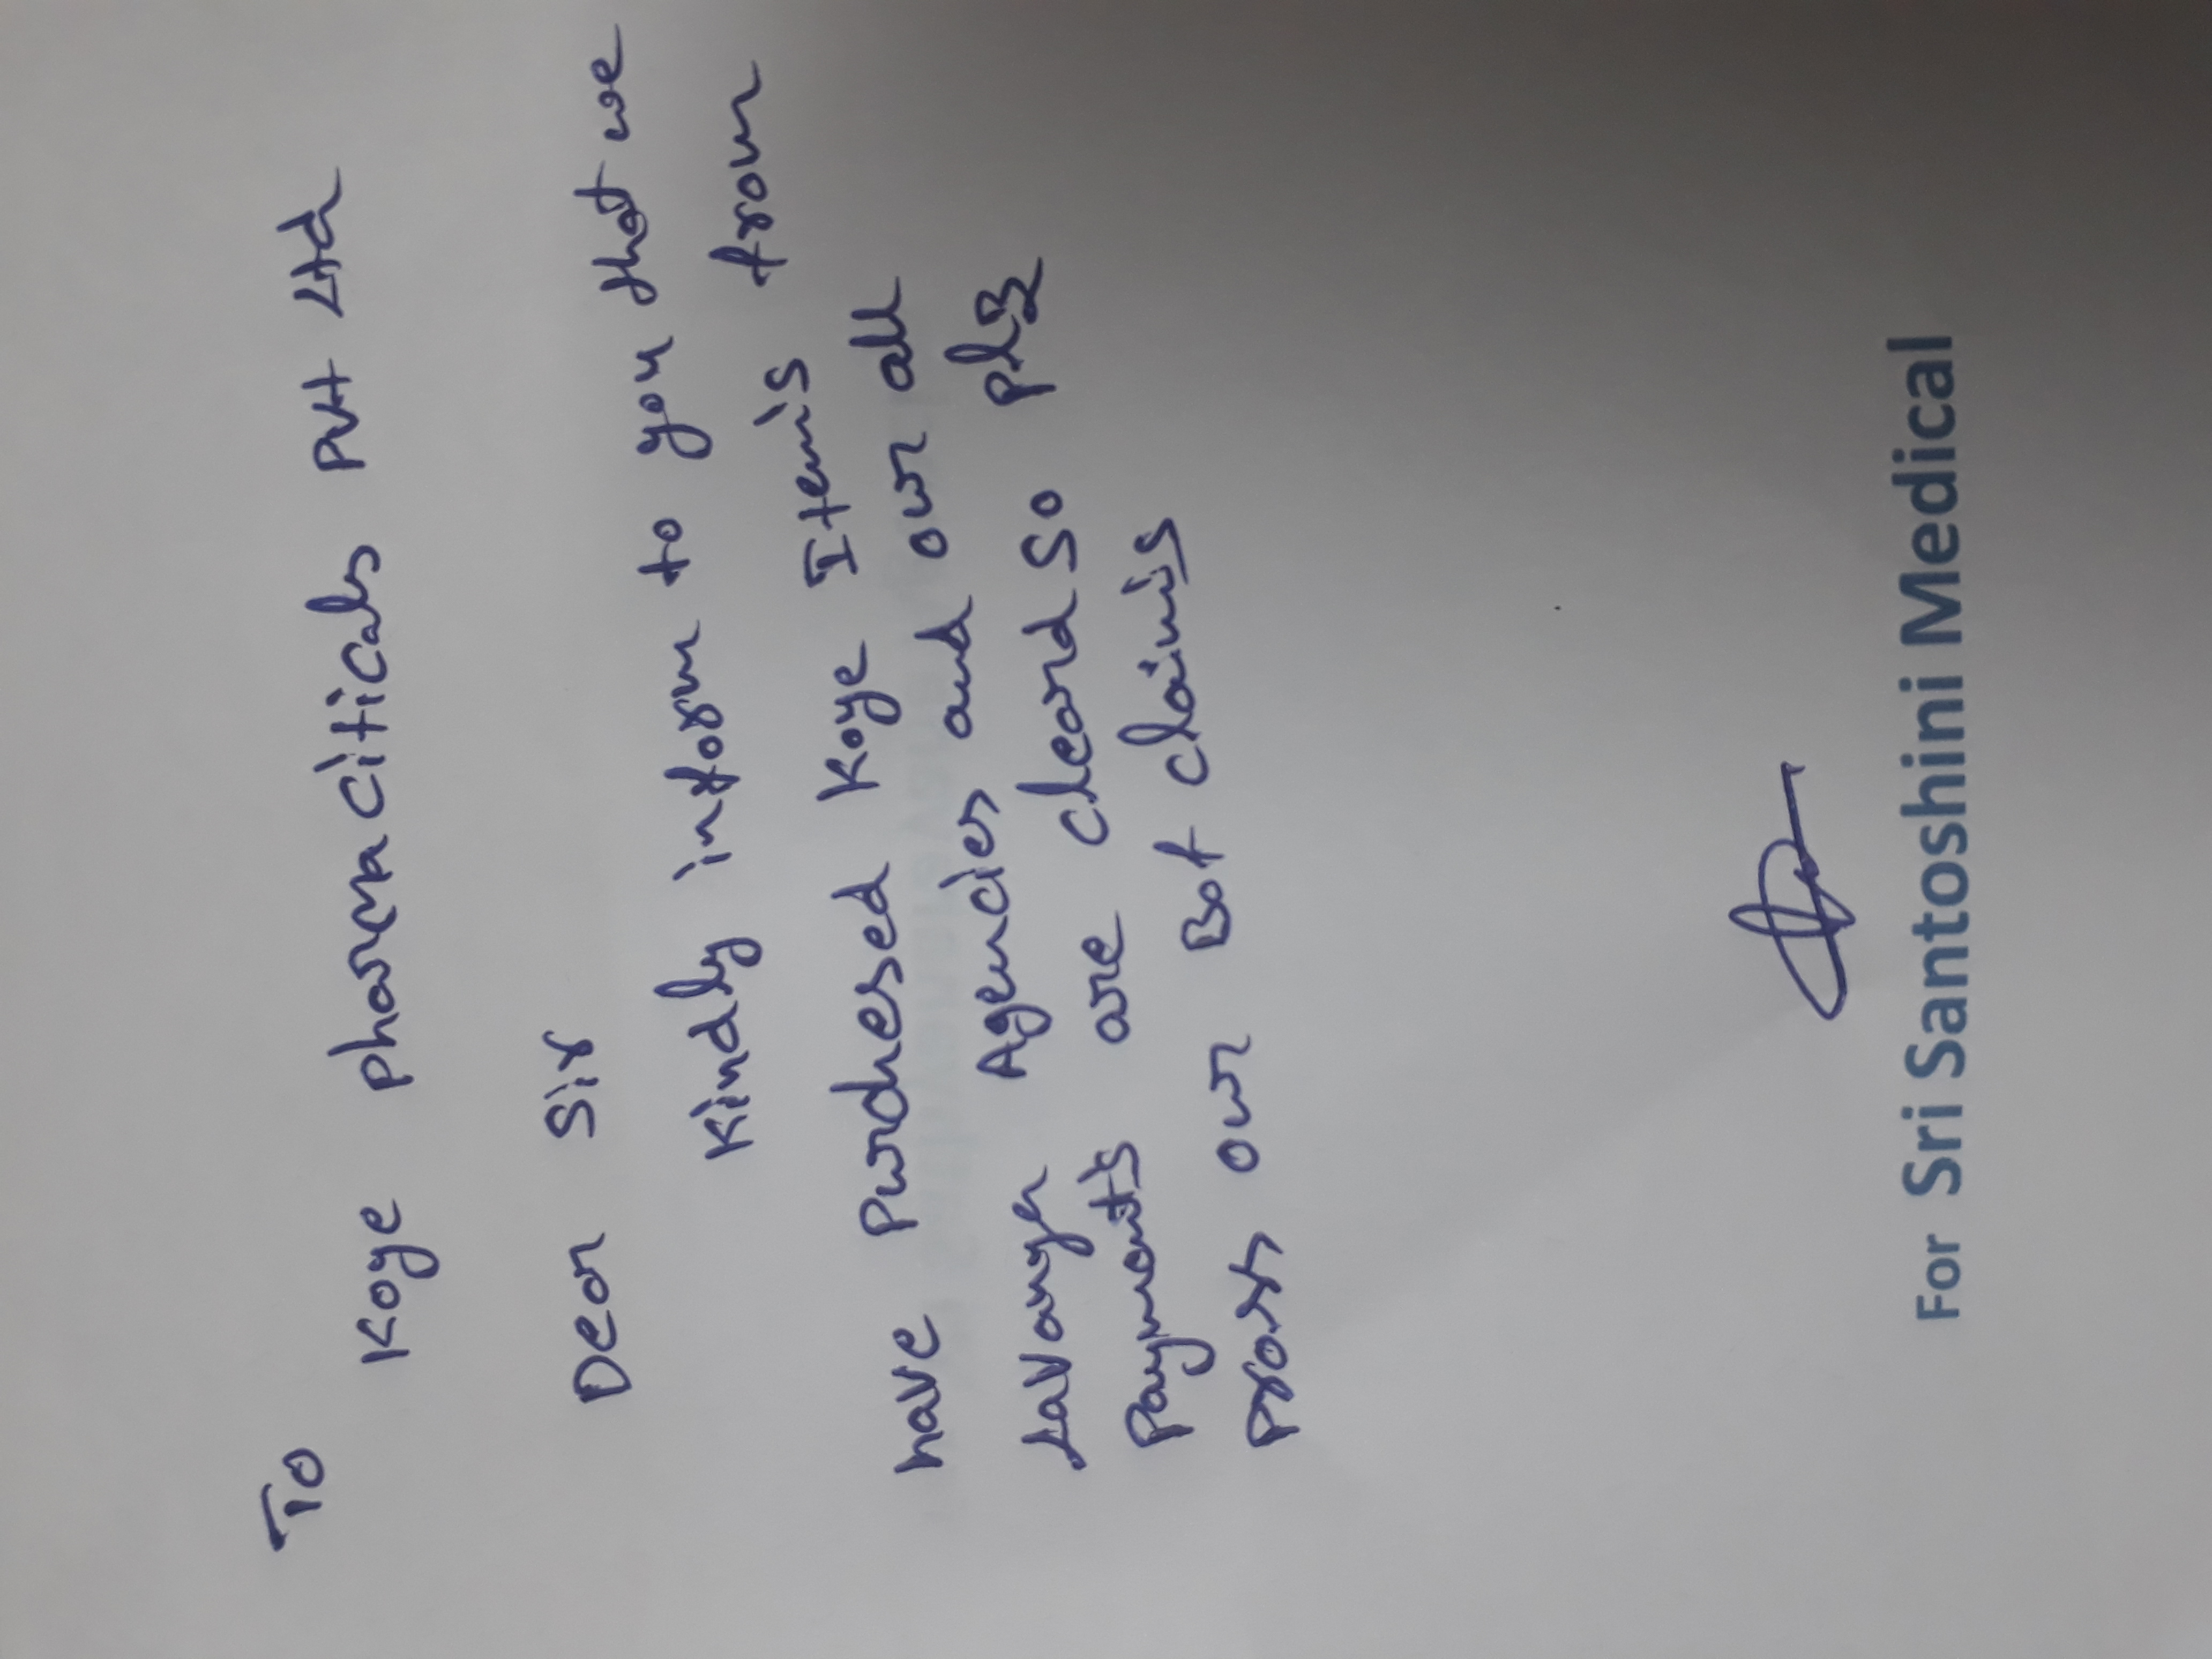 To
Koye pharmaciticals Pvt Ltd
Dear Sir
Kindly inform to you that we
have Purchesed Koye Items from
Lavanya Agencies and our all
Payments are cleard So plz
our Bot claims
For Sri Santoshini Medical